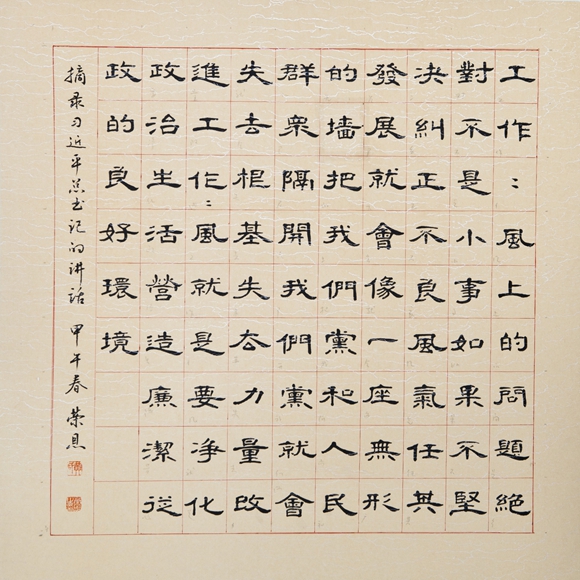 工作〻風上的問題絕
對不是小事如果不堅
决糾正不良風氣任其
發展就會像一座無形
的墙把我們黨和人民
群衆隔開我們黨就會
失去根基失去力量改
進工作〻風就是要净化
政治生活營造廉潔從
政的良好環境
摘录习近平总书记的讲话 甲午春 荣恩